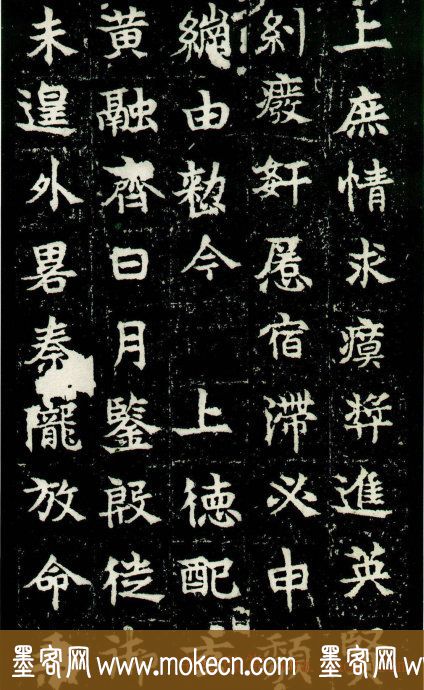 上庶情求瘼奨進英
糺癈姧慝宿滯必申
由勑今　上徳配
黄融齊日月鑒殷徙
未遑外畧秦隴放命
墨客网 www.mokecn.com 墨客网 ww